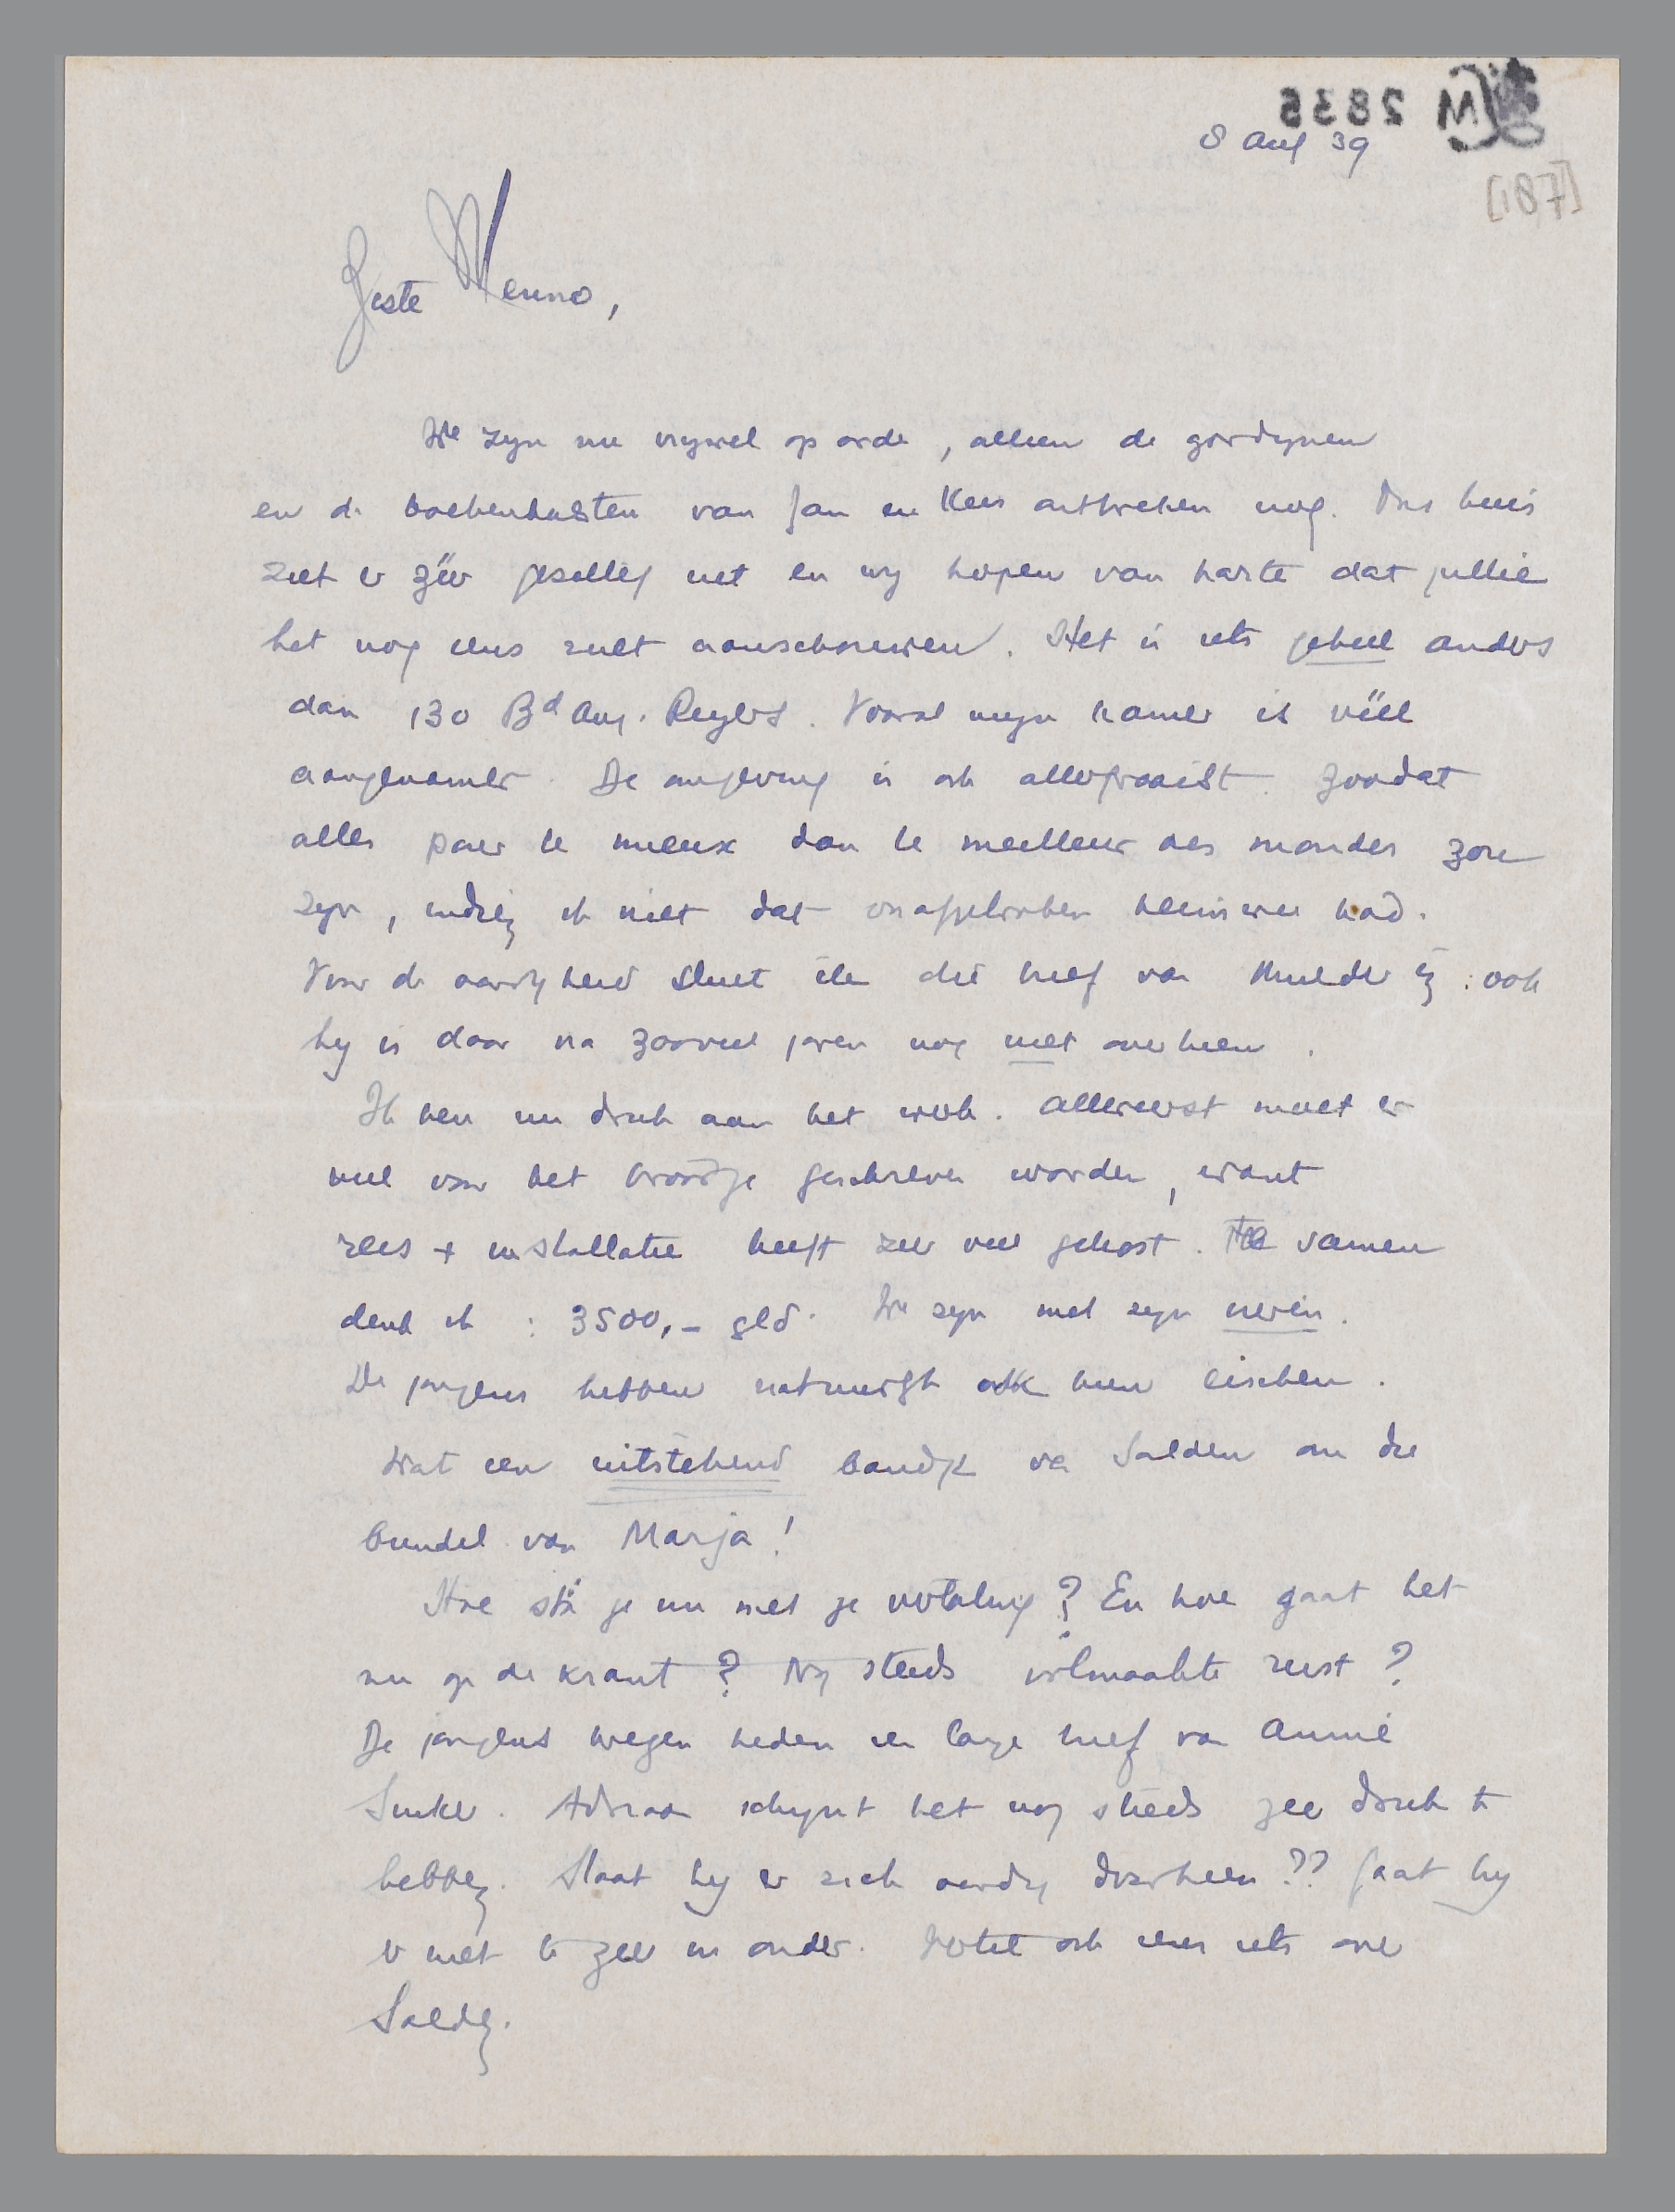 M 2835
8 Aug 39
[187]
Beste Menno,
We zijn nu vrijwel op orde, alleen de gordijnen
en de boekenkasten van Jan en Kees ontbreken nog. Ons huis
ziet er zéér gezellig uit en wij hopen van harte dat jullie
het nog eens zult aanschouwen. Het is iets geheel anders
dan 130 Bd Aug. Reyers. Vooral mijn kamer is véél
aangenamer. De omgeving is ook allerfraaist. Zoodat
alles pour le mieux dans le meilleur des mondes zou
zijn, indien ik niet dat onafgebroken heimwee had.
Voor de aardigheid sluit ik die brief van Mulder in: ook
hij is daar na zooveel jaren nog niet overheen.
Ik ben nu druk aan het werk. Allereerst moet er
veel voor het broodje geschreven worden, want
reis + installatie heeft zeer veel gekost. samen
denk ik: 3500,- gld. We zijn met zijn
De jongens hebben natuurlijk ook hun eischen.
Wat een uitstekend bandje van Salden om die
bundel van Marja!
Hoe sta je nu met je vertaling? En hoe gaat het
nu op de krant? Nog steeds volmaakte rust?
De jongens kregen heden een lange brief van Annie
Adriaan schijnt het nog steeds zeer druk te
hebben. Slaat hij er zich aardig doorheen?? Gaat hij
er niet te zeer in onder. Vertel ook eens iets over
Salden.